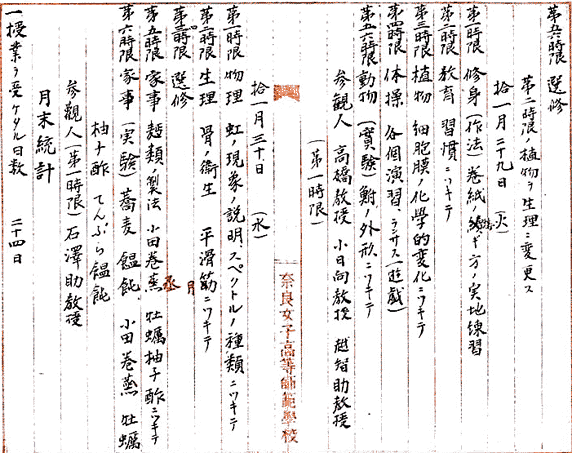 第五六時限 選修
第二時限ノ植物ヲ生理ニ変更ス
拾一月二十九日 (火)
第一時限 修身(作法)巻紙ノ継ギ方ノ実地練習
第二時限 教育 習慣ニツキテ
第三時限 植物 細胞膜ノ化學的変化ニツキテ
第四時限 体操 各個演習、ランサス(遊戯)
第五六時限 動物(實験)鮒ノ外形ニツキテ
参観人 高橋教授 小日向教授 越智助教授
(第一時限)
奈良女子高等師範學校
拾一月三十日 (水)
第一時限 物理 虹ノ現象ノ説明、スペクトルノ種類ニツキテ
第二時限 生理 骨ノ衛生 平滑筋ニツキテ
第三時限 選修
第五時限 家事 麺類ノ製法 小田巻蒸 牡蠣柚子酢ニツキテ
第六時限 家事(実験)蕎麦 饂飩、小田巻蒸 牡蠣
柚子酢 てんぷら饂飩
参観人(第一時限)石澤助教授
月末統計
一授業ヲ受ケタル日数 二十四日